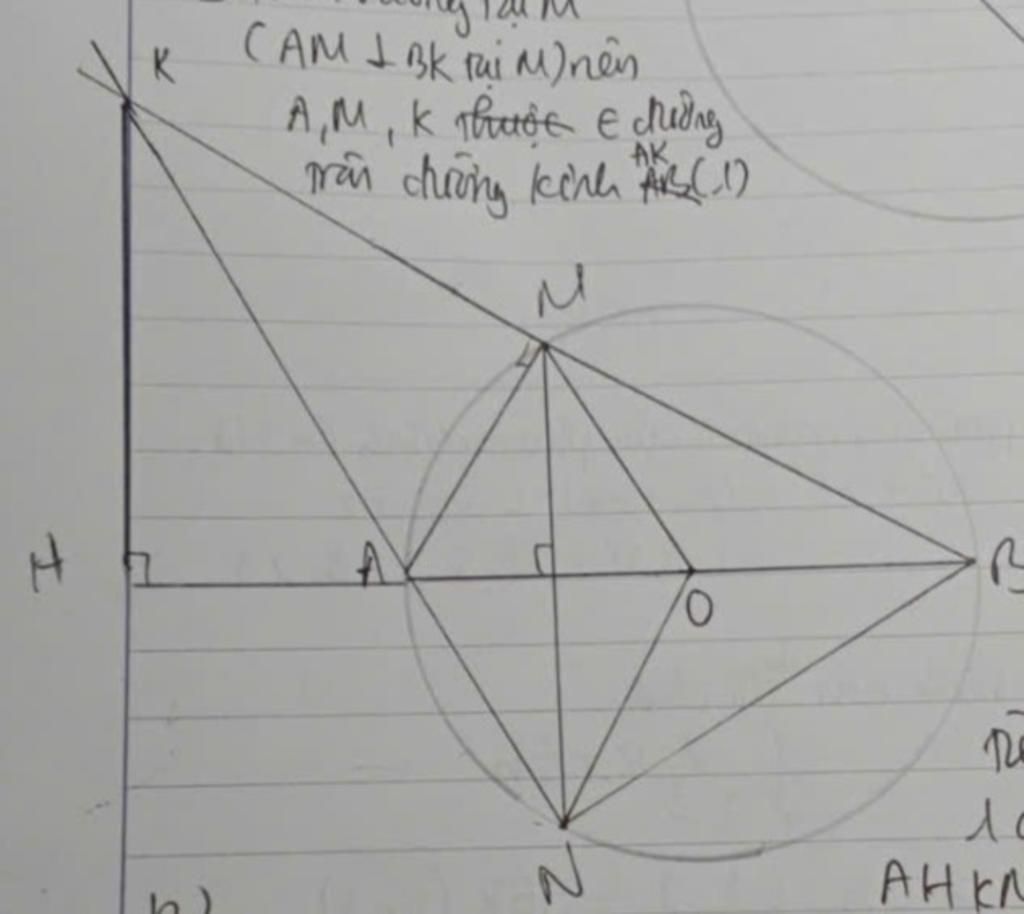 vuông tại M
(AM ⊥ BK tại M) nên
A, M, K thuộc ∈ đường
tròn đường kính AK (1)
K
M
H
A
O
B
N
1
AHKM
b)